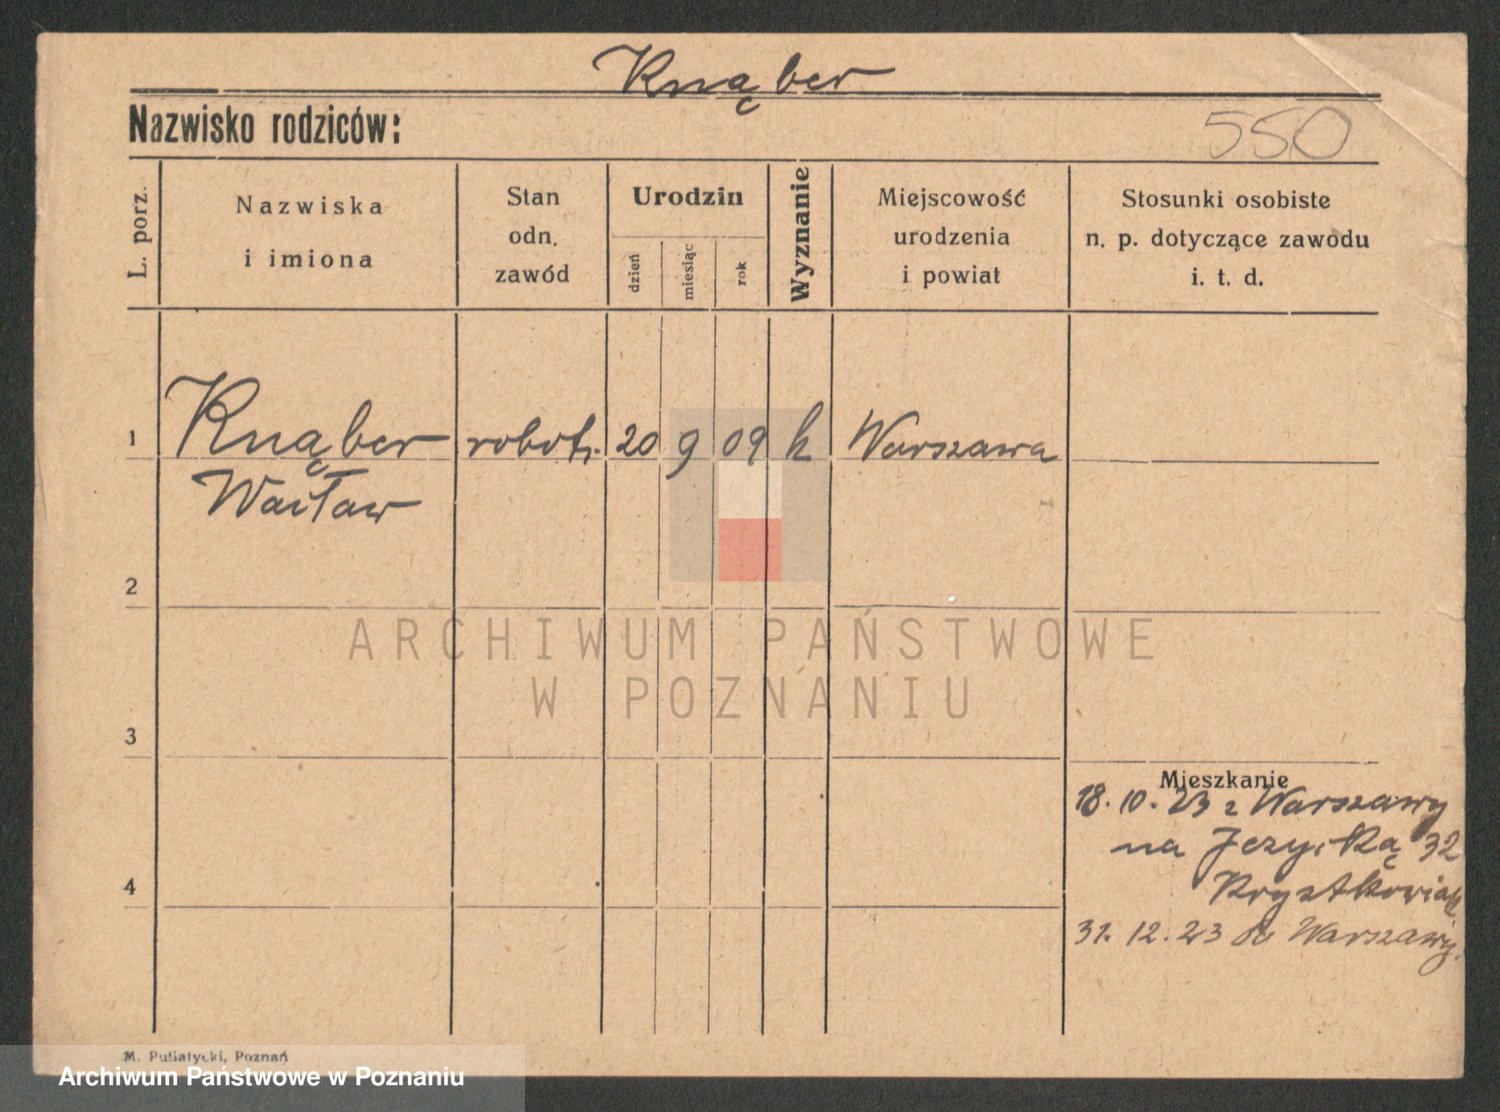 Knąber
Nazwisko rodziców:
550
L. porz.
Nazwiska
i imiona
Stan
odn.
zawód
Urodzin
dzień
miesiąc
rok
Wyznanie
Miejscowość
urodzenia
i powiat
Stosunki osobiste
n. p. dotyczące zawodu
i. t. d.
1 Knąber robotn. 20 9 09 k Warszawa
Wacław
2
ARCHIWUM PAŃSTWOWE
W POZNANIU
3
Mieszkanie
18. 10. 23 z Warszawy
na 32
Krystkowiak
4
31. 12. 23 do Warszawy.
M. Puliatycki, Poznań
Archiwum Państwowe w Poznaniu